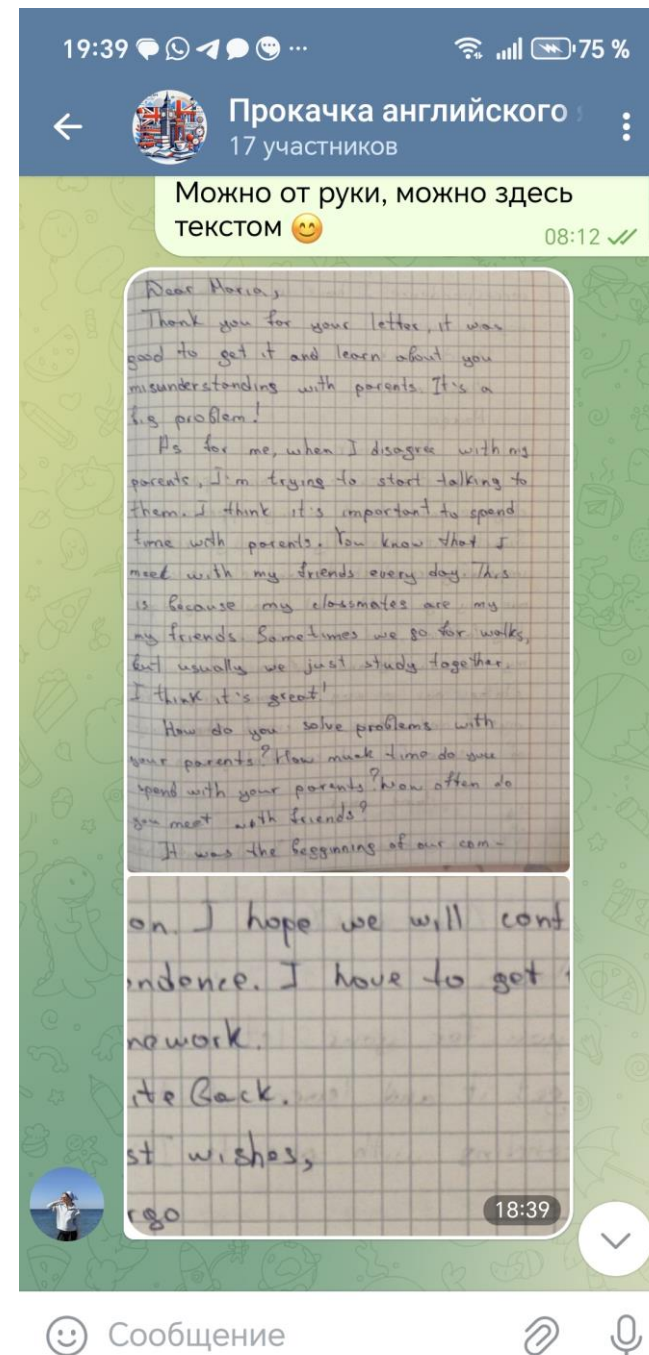 19:39 75 %
Прокачка английского
17 участников
Можно от руки, можно здесь
текстом 😊
08:12
Dear Maria,
Thank you for your letter, it was
good to get it and learn about you
misunderstanding with parents. It's a
big problem!
As for me, when I disagree with my
parents, I'm trying to start talking to
them. I think it's important to spend
time with parents. You know that I
meet with my friends every day. This
is because my classmates are my
my friends. Sometimes we go for walks,
but usually we just study together.
I think it's great!
How do you solve problems with
your parents? How much time do you
spend with your parents? How often do
you meet with friends?
It was the begginning of our com-
on. I hope we will cont
ndence. I have to get
mework.
ite back.
st wishes,
rgo
18:39
Сообщение